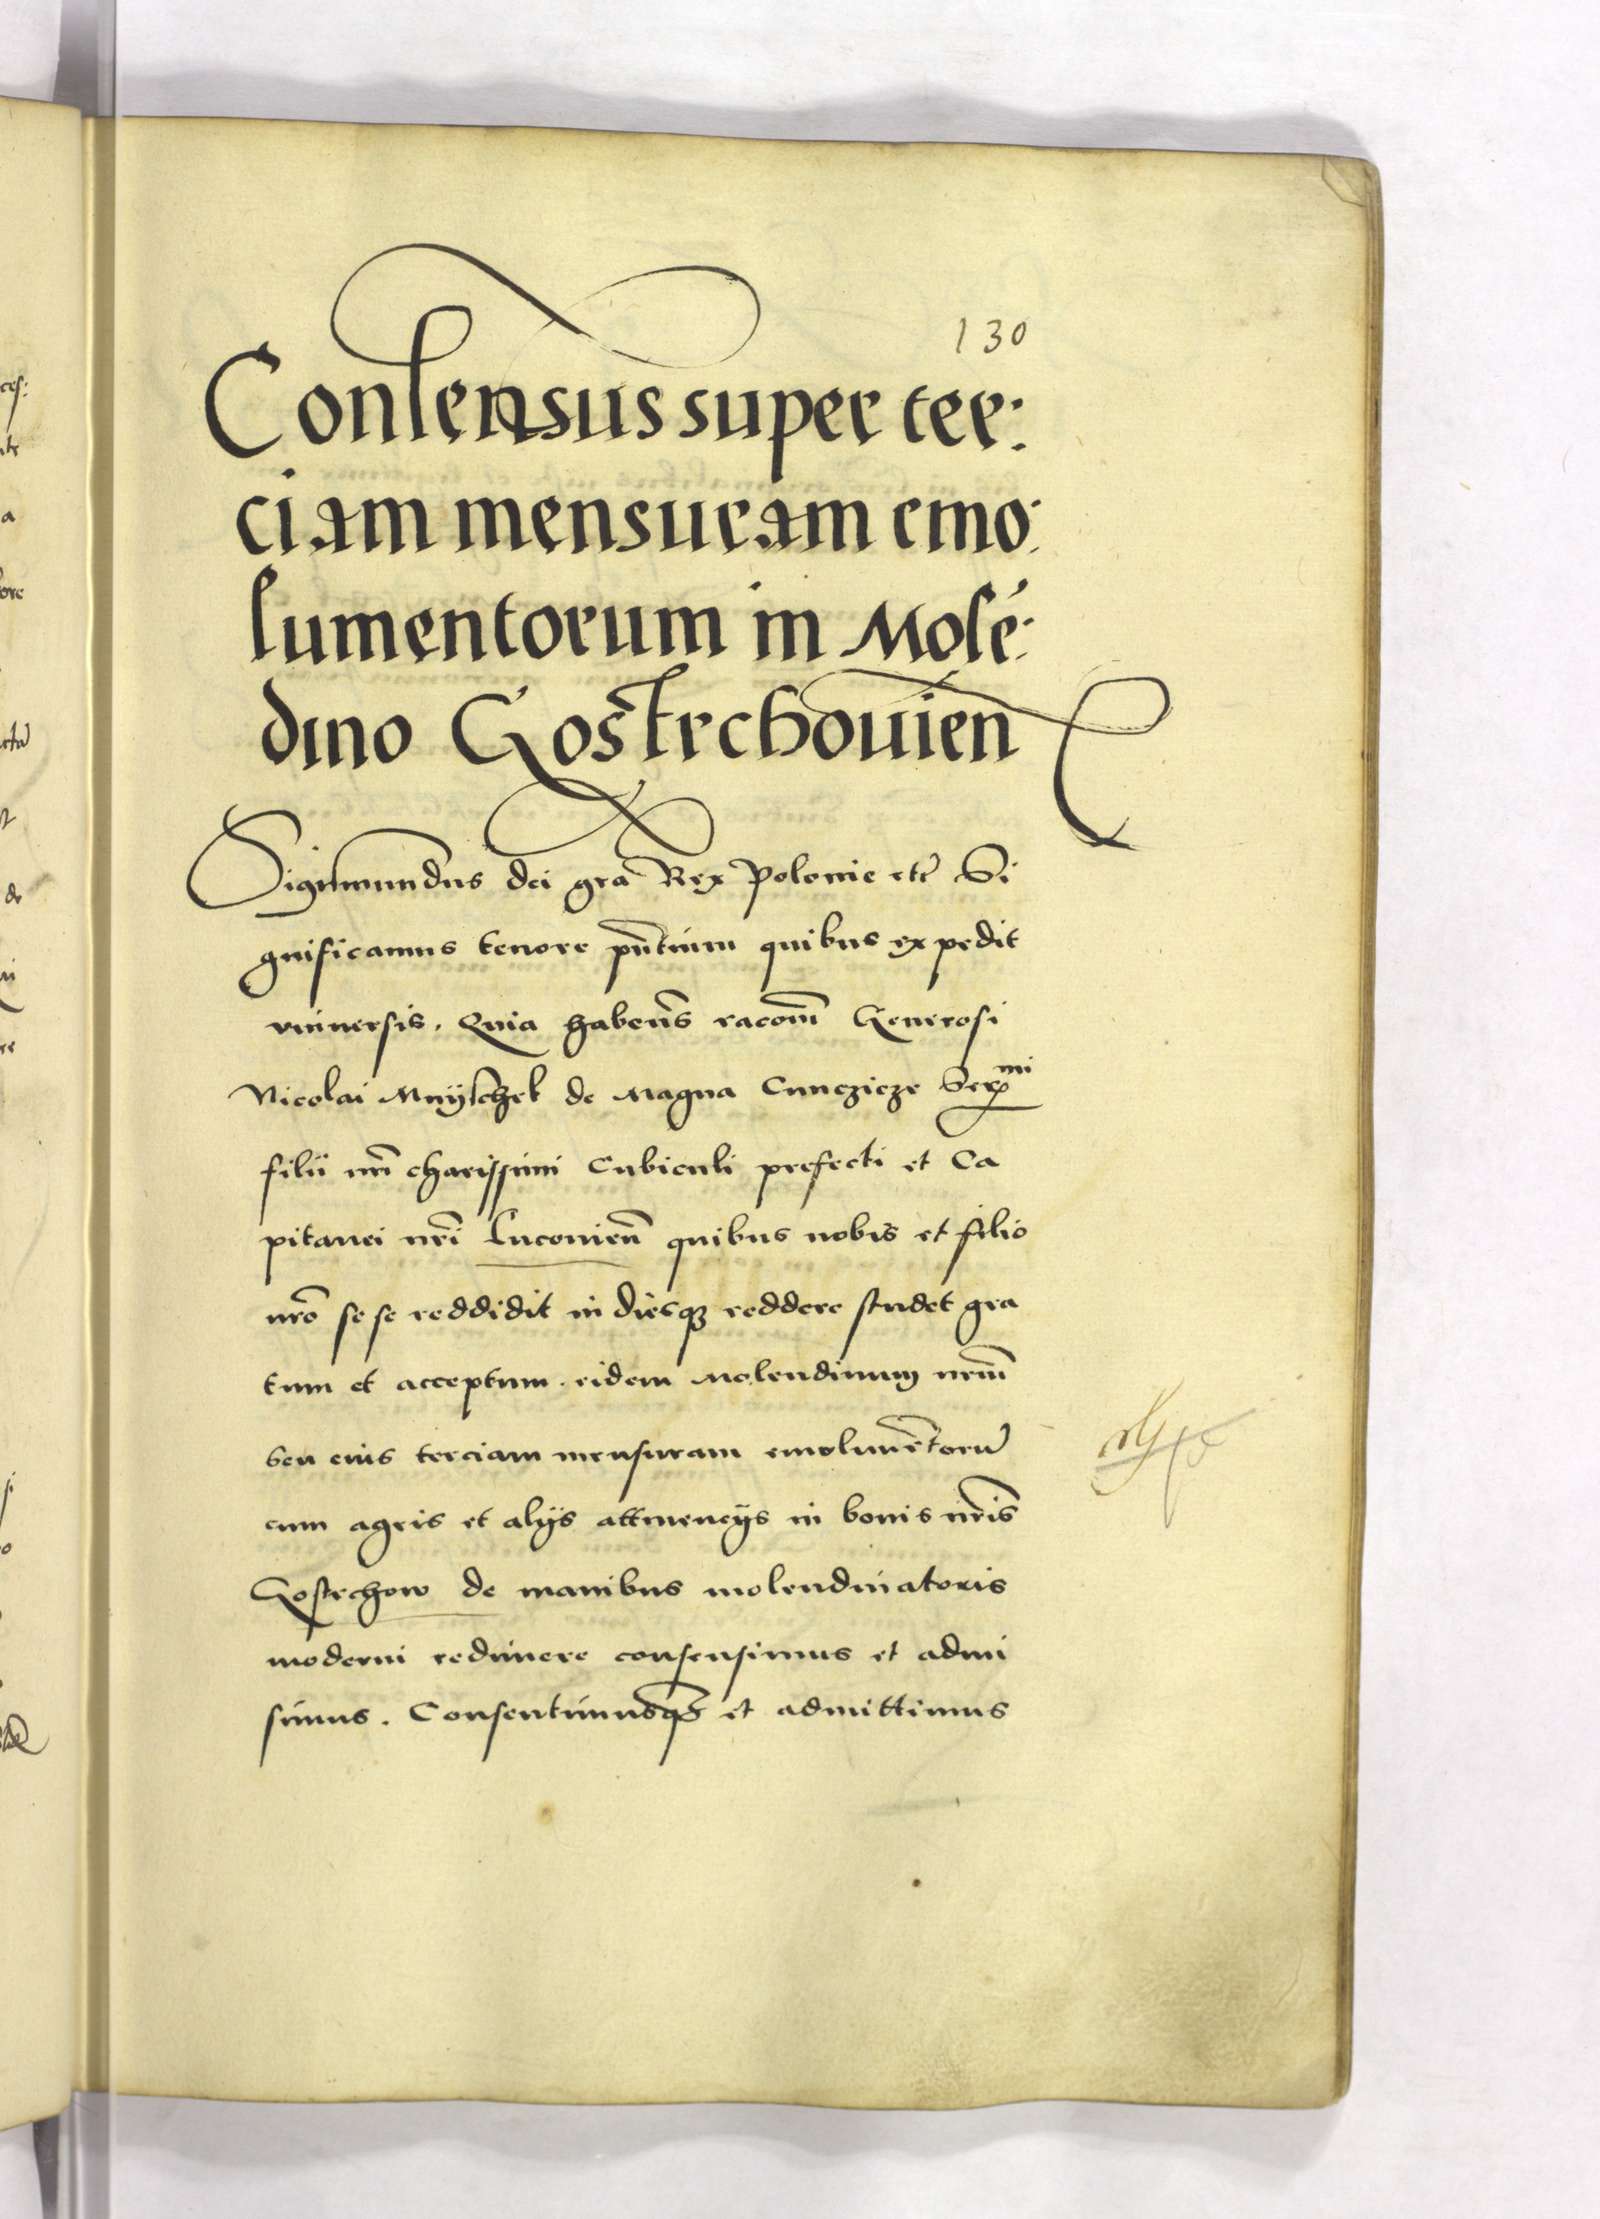 130
Consensus super ter:
ciam mensuram emo:
lumentorum in Molē:
dino Gostrchovien
Sigismundus dei gra Rex Polonie etc̄ Si
gnificamus tenore pn̄tium quibus expedit
vniuersis. Quia haben̄s racōm̄ Generosi
Nicolai Mnÿschek de Magna Cunczicze Ser͞mi
filii nr̄i charissimi Cubiculi prefecti et Ca
pitanei nr̄i Luconien̄ quibus nobis et filio
nr̄o se se reddidit in diesqꝫ reddere studet gra
tum et acceptum. eidem Molendinum nr̄um
seu eius terciam mensuram emolumētorū
cum agris et alÿs attinencÿs in bonis nr̄is
Gostrchow de manibus molendinatoris
moderni redimere consensimus et admi
simus. Consentimusqꝫ et admittimus